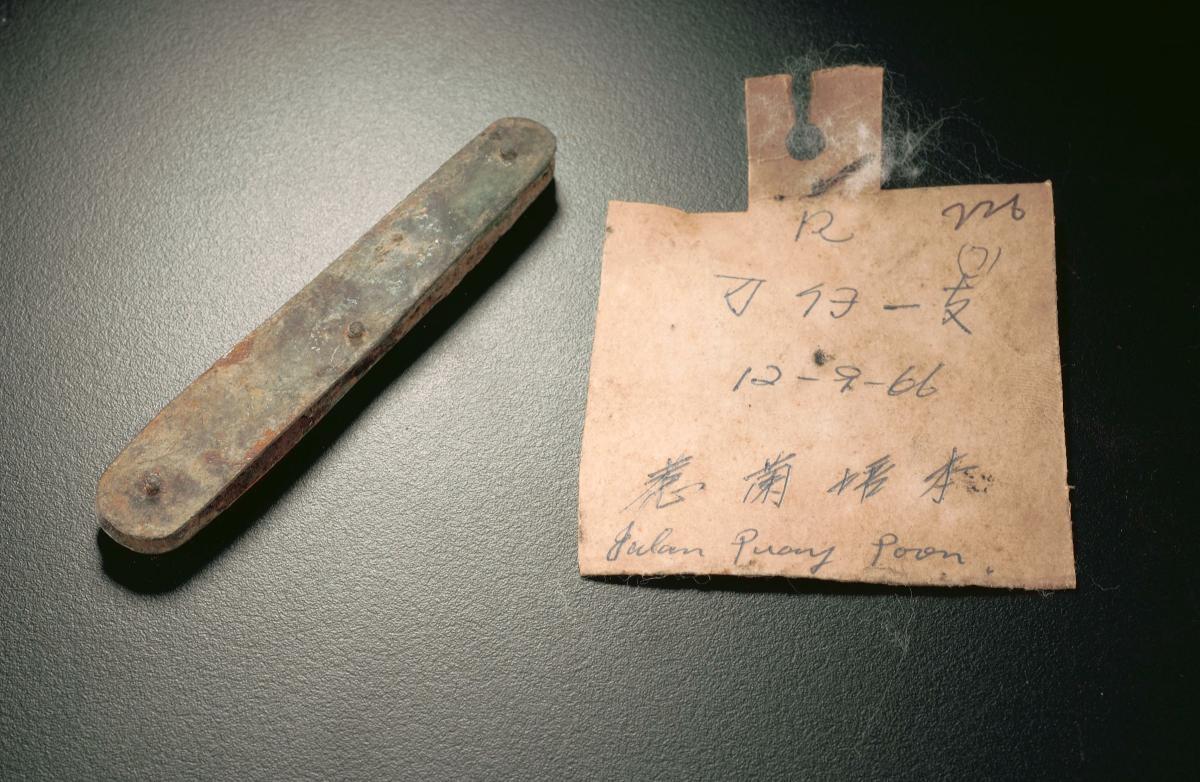 R 226
刀仔一支
12-9-66
惹蘭培本
Jalan Puay Poon.